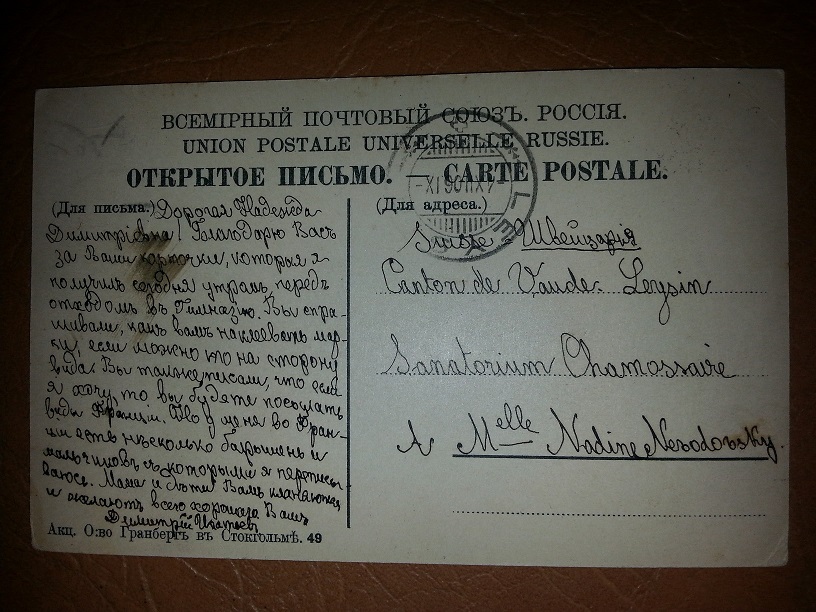 ВСЕМІРНЫЙ ПОЧТОВЫЙ СОЮЗЪ. РОССІЯ.
UNION POSTALE UNIVERSELLE RUSSIE.
ОТКРЫТОЕ ПИСЬМО. — CARTE POSTALE.
(Для письма.) Дорогая Надежда
Димитріевна! Благодарю Васъ
за Ваши карточки, которыя я
получилъ сегодня утрамъ, передъ
отходомъ въ Гимназію. Вы спра-
шивали, какъ вамъ наклеевать мар-
ку, если можно то на сторону
вида. Вы также писали, что если
я хочу то вы будете посылать
виды Франціи. Но у меня во Фран-
ціи есть нѣсколько барышень и
мальчиковъ съ которыми я переписы-
ваюсь. Мама и дѣти Вамъ кланяются
и желаютъ всего хорошаго Вамъ
Димитрій
Акц. О:во Гранбергъ въ Стокгольмѣ. 49
(Для адреса.)
Suisse Швейцарія
Canton de Vaude. Leysin
Sanatorium Chamossaire
A Melle Nadine
LEY